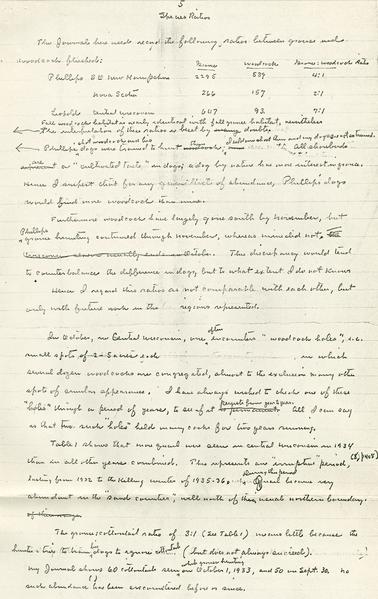 5
Species Ratios
The Journals here used record the following ratios between grouse and
woodcock flushed:
Grouse woodcock Grouse:woodcock ratio
Phillips SE New Hampshire 2295 539 4:1
Nova Scotia 266 157 2:1
Leopold Central Wisconsin 647 93 7:1
Fall woodcock habitat is nearly identical with fall grouse habitat, nevertheless
the interpretation of these ratios is beset by many doubts.
Phillips' dogs was trained to hunt woodcock and my dogs are not so trained. All sheds
are a "cultivated taste" in dogs; a dog by nature has more interest in grouse.
Hence I suspect that for any given of abundance, Phillips' dogs
would find more woodcock than mine.
Furthermore woodcock have largely gone south by November, but
Phillips grouse hunting continued through November, whereas mine did not,
October. This discrepancy would tend
to counterbalance the difference in dogs, but to what extent I do not know
Hence I regard this ratios as not comparable with each other, but
only with future work in the regions represented.
In October, in Central Wisconsin, one often encounters "woodcock holes", i.e.
small spots of 2-5 acres each in which
several dozen woodcocks are congregated, almost to the exclusion of many other
spots of similar appearance. I have always wished to check one of these
"holes" through a period of years, to see if it persists from year to year. All I can say
is that two such "holes" held many cocks for two years running.
Table 1 shows that more quail were seen in central Wisconsin in 1934
than in all other years combined. This represents an "irruptive" period,
lasting from 1932 to the killing winter of 1935-36. During this period Quail became very
abundant in the "sand counties", well north of their usual northern boundary.
The grouse:cottontail ratio of 3:1 (see Table 1) means little because the
hunter tries to train his dogs to ignore cottontails (but does not always succeed).
My Journal shows 60 cottontails seen while grouse hunting on October 1, 1933, and 50 on Sept. 30. No
such abundance has been encountered before or since.